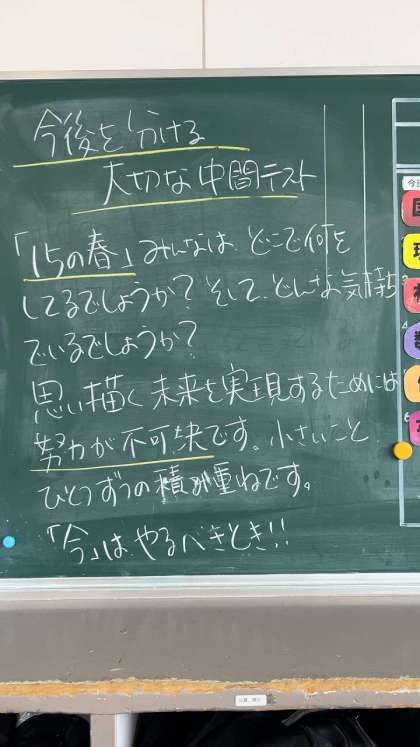 今後を分ける
大切な中間テスト
「15の春」みんなは、どこで何を
してるでしょうか？そして、どんな気持ち
でいるでしょうか？
思い描く未来を実現するためには
努力が不可欠です。小さいこと
ひとつずつの積み重ねです。
「今」はやるべきとき!!
今日